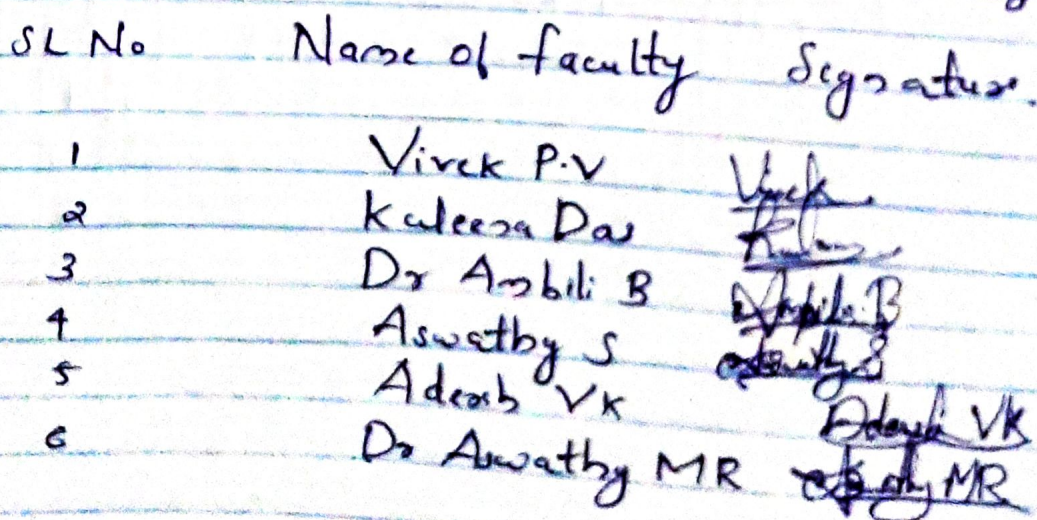 SL No Name of faculty Signature.
1 Vivek P.V Vivek
2 Kaleesa Das
3 Dr Ambili B Ambili B
4 Aswathy S Aswathy S
5 Adersh VK Adersh VK
6 Dr Aswathy MR Aswathy MR